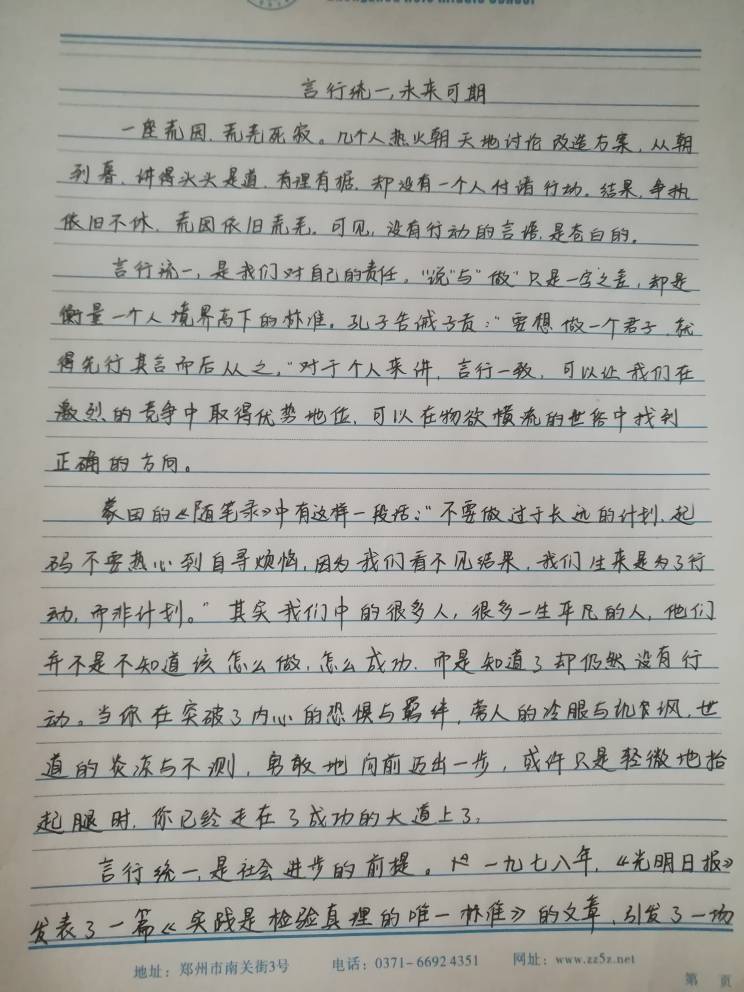 言行统一,未来可期
一座荒园,荒芜死寂。几个人热火朝天地讨论改造方案,从朝
到暮,讲得头头是道,有理有据,却没有一个人付诸行动。结果,争执
依旧不休,荒园依旧荒芜。可见,没有行动的言语,是苍白的。
言行统一,是我们对自己的责任,"说"与"做"只是一字之差,却是
衡量一个人境界高下的标准。孔子告诫子贡:"要想做一个君子,就
得先行其言而后从之,"对于个人来讲,言行一致,可以让我们在
激烈的竞争中取得优势地位,可以在物欲横流的世俗中找到
正确的方向。
蒙田的《随笔录》中有这样一段话:"不要做过于长远的计划,起
码不要热心到自寻烦恼,因为我们看不见结果,我们生来是为了行
动,而非计划。"其实我们中的很多人,很多一生平凡的人,他们
并不是不知道该怎么做,怎么成功,而是知道了却仍然没有行
动。当你在突破了内心的恐惧与羁绊,旁人的冷眼与讥讽,世
道的炎凉与不测,勇敢地向前迈出一步,或许只是轻微地抬
起腿时,你已经走在了成功的大道上了,
言行统一,是社会进步的前提。一九七八年,《光明日报》
发表了一篇《实践是检验真理的唯一标准》的文章,引发了一场
地址:郑州市南关街3号 电话:0371-66924351 网址:www.zz5z.net
第 页